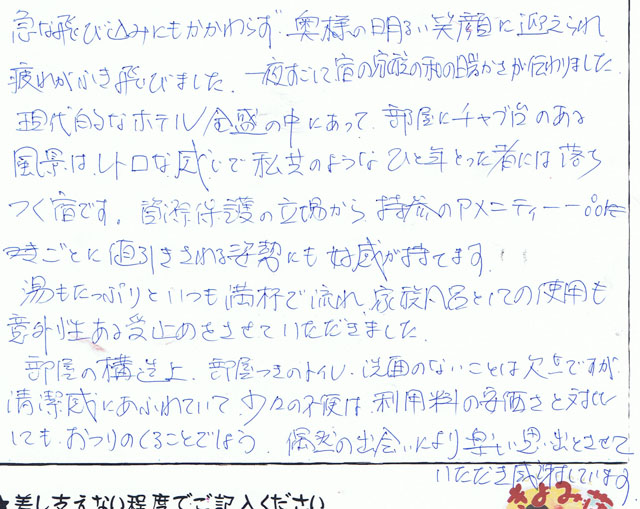 急な飛び込みにもかかわらず 奥様の明るい笑顔に迎えられ
疲れがふき飛びました。一夜すごして宿の家族の和の暖かさが伝わりました
現代的なホテル全盛の中にあって、部屋にチャブ台のある
風景は、レトロな感じで私共のようなひと年とった者には落ち
つく宿です。資源保護の立場から持参のアメニティー一品
ごとに値引きされる姿勢にも好感が持てます。
湯もたっぷりといつも満杯で流れ、家族風呂としての使用も
意外性ある受止めをさせていただきました。
部屋の構造上、部屋つきのトイレ・洗面のないことは欠点ですが
清潔感にあふれていて少々の不便は、利用料の安価さと対比
しても、おつりのくることでしょう。偶然の出会いにより楽しい思い出とさせて
いただき感謝しています
★差し支えない程度でご記入ください